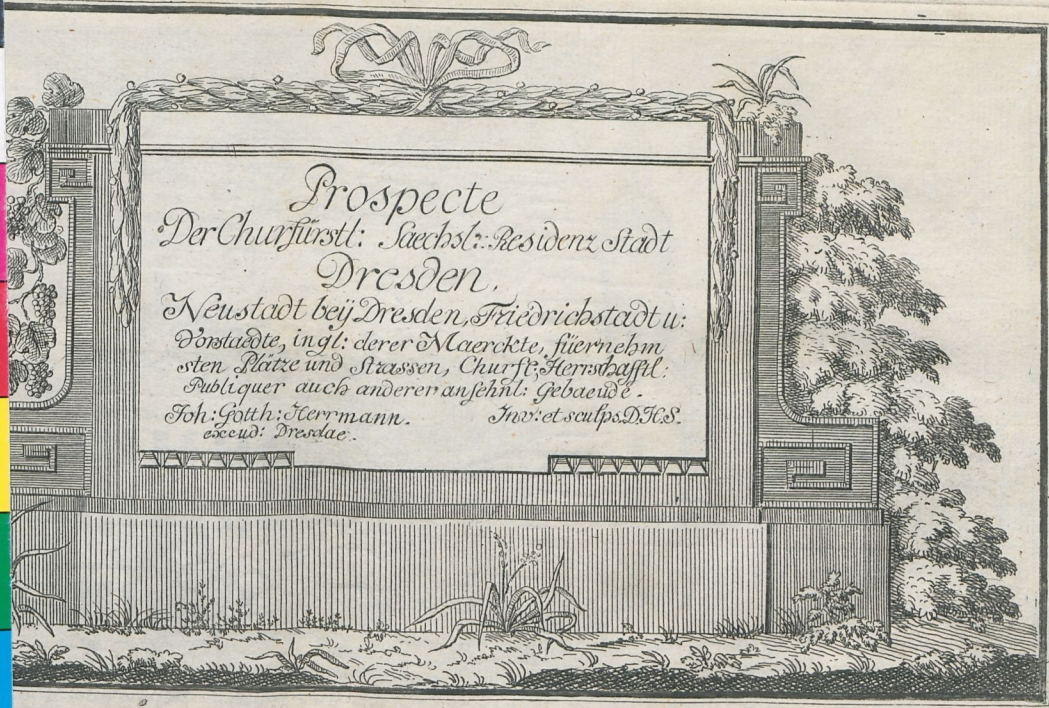 Prospecte
Der Churfürstl: Saechsl: Residenz Stadt
Dresden.
Neustadt beÿ Dresden, Friedrichstadt u:
Vorstaedte, ingl: derer Maerckte, füernehm
sten Plätze und Strassen, Churfl: Herrschafftl:
Publiquer auch anderer ansehnl: Gebaeude.
Joh: Gotth: Herrmann. Inv: et sculps. D.H.S.
excud: Dresdae.